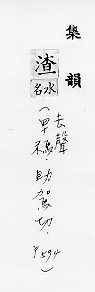 集韻
渣
水名
(去聲
禡·助駕切·
P594)